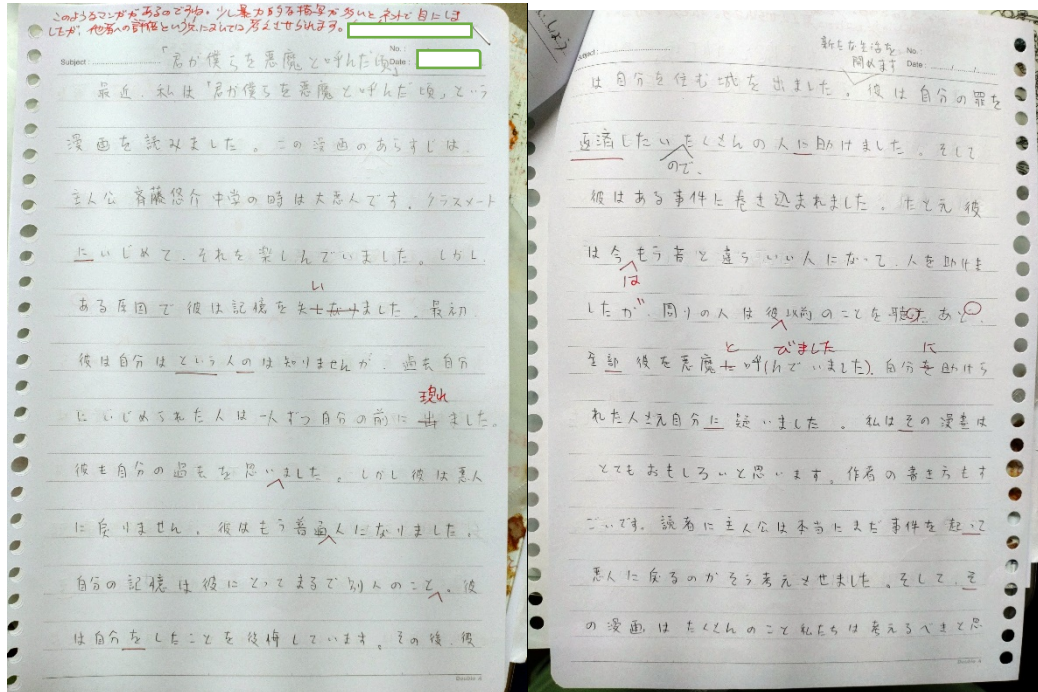 このようなマンガがあるのですね。少し暴力的な描写が多いとネットで目にしま
したが、他者への評価という点においては考えさせられます。
No.:
Subject: 「君が僕らを悪魔と呼んだ頃」 Date:
最近、私は「君が僕らを悪魔と呼んだ頃」という
漫画を読みました。この漫画のあらすじは、
主人公 斉藤悠介 中学の時は大悪人です。クラスメート
にいじめて、それを楽しんでいました。しかし、
い
ある原因で彼は記憶を失ました。最初、
彼は自分はという人のは知りませんが、過去自分
現れ
にいじめられた人は一人ずつ自分の前に出ました。
彼も自分の過去を思いました。しかし彼は悪人
に戻りません。彼はもう普通人になりました。
自分の記憶は彼にとってまるで別人のこと、彼
は自分をしたことを後悔しています。その後、彼
Double A
しよう
新たな生活を
始めます
No.:
Date:
は自分を住む城を出ました。彼は自分の罪を
返済したいたくさんの人に助けました。そして
ので、
彼はある事件に巻き込まれました。たとえ彼
は今もう昔と違ういい人になって、人を助けま
は
したが、周りの人は彼以前のことを聴いたあと、
と びました に
全部 彼を悪魔に呼(んでいました)。自分を助けら
れた人さえ自分に疑いました。私はその漫画は
とてもおもしろいと思います。作者の書き方もす
ごいです。読者に主人公は本当にまだ事件を起って
悪人に戻るのかそう考えさせました。そして、そ
の漫画はたくさんのこと私たちは考えるべきと思
Double A